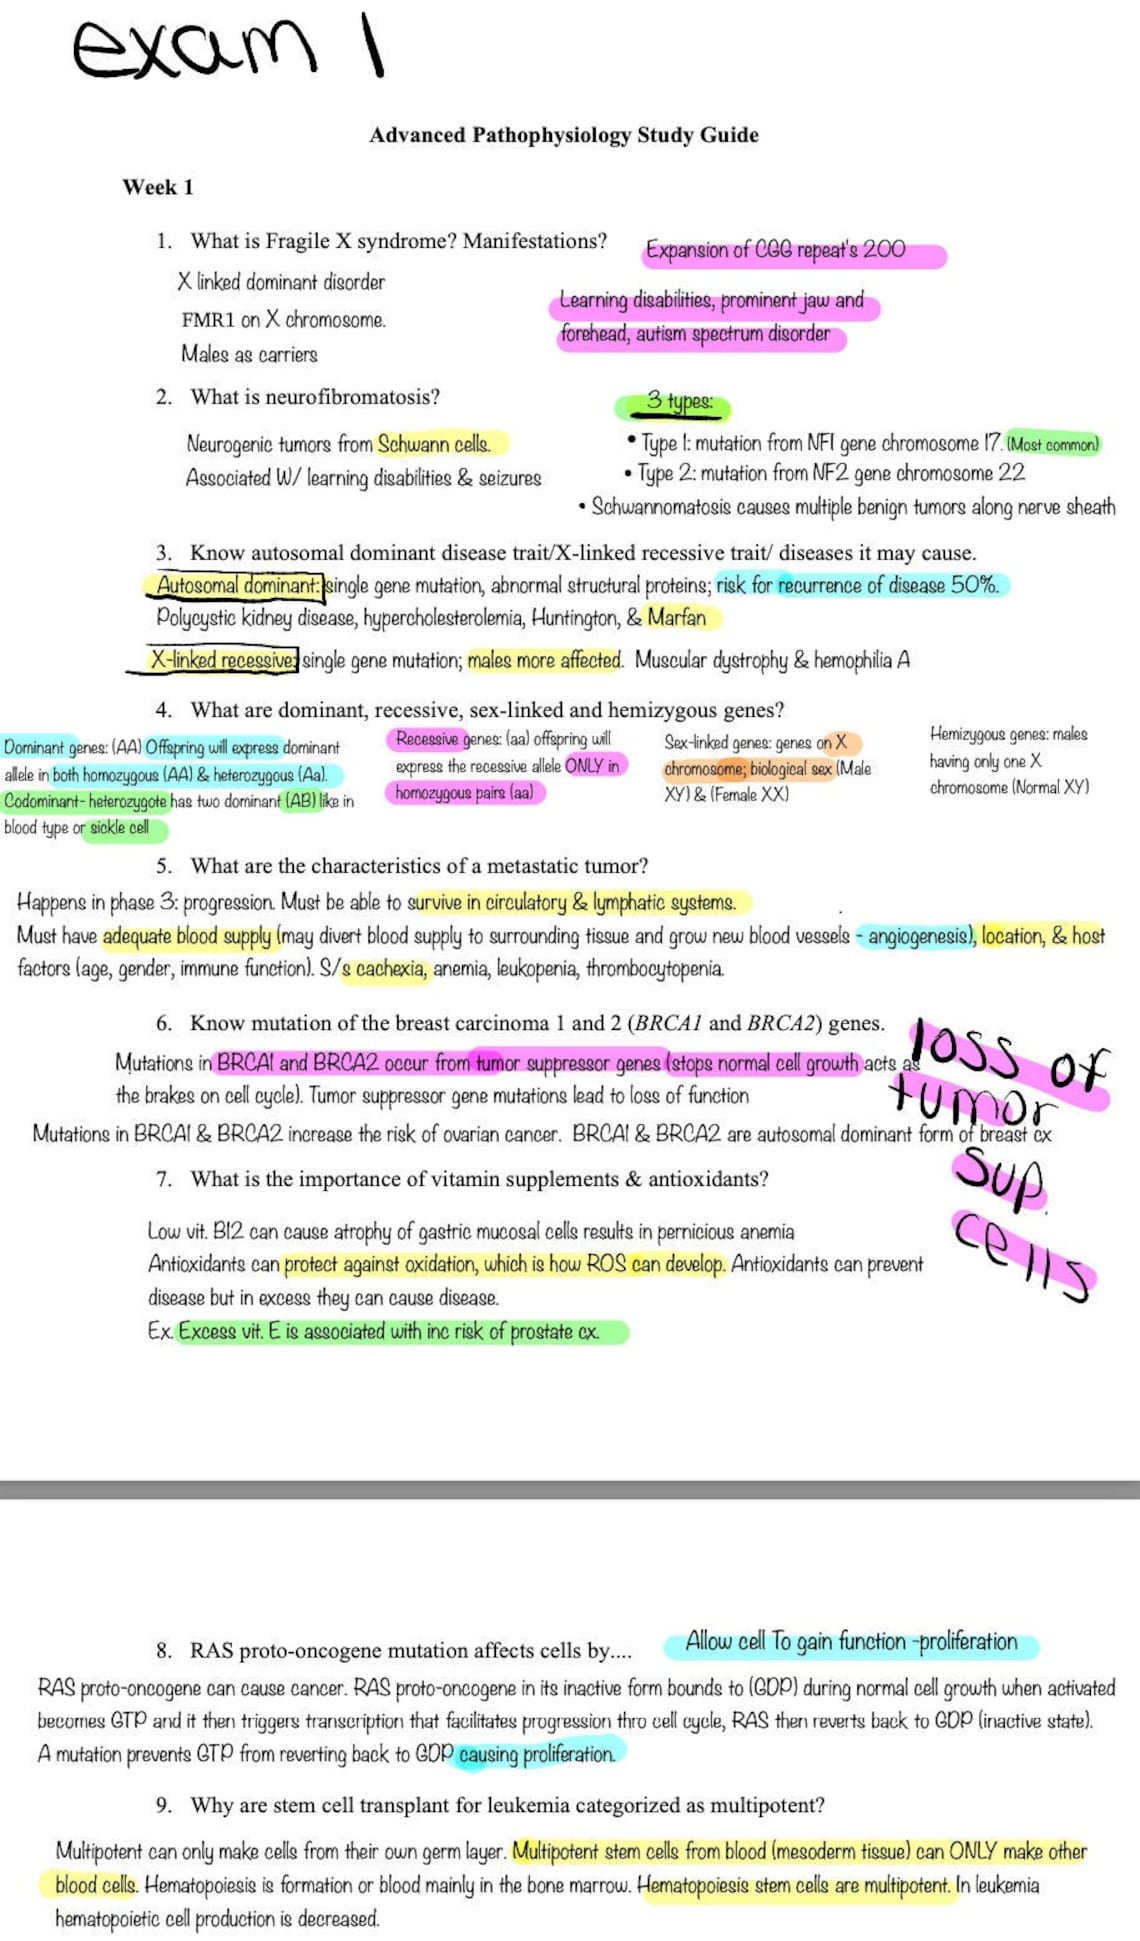 exam 1
Advanced Pathophysiology Study Guide
Week 1
1. What is Fragile X syndrome? Manifestations?
Expansion of CGG repeat's 200
X linked dominant disorder
FMR1 on X chromosome.
Males as carriers
Learning disabilities, prominent jaw and
forehead, autism spectrum disorder
2. What is neurofibromatosis?
Neurogenic tumors from Schwann cells.
Associated W/ learning disabilities & seizures
3 types:
• Type 1: mutation from NF1 gene chromosome 17. (Most common)
• Type 2: mutation from NF2 gene chromosome 22
• Schwannomatosis causes multiple benign tumors along nerve sheath
3. Know autosomal dominant disease trait/X-linked recessive trait/ diseases it may cause.
Autosomal dominant: single gene mutation, abnormal structural proteins; risk for recurrence of disease 50%.
Polycystic kidney disease, hypercholesterolemia, Huntington, & Marfan
X-linked recessive: single gene mutation; males more affected. Muscular dystrophy & hemophilia A
4. What are dominant, recessive, sex-linked and hemizygous genes?
Dominant genes: (AA) Offspring will express dominant
allele in both homozygous (AA) & heterozygous (Aa).
Codominant- heterozygote has two dominant (AB) like in
blood type or sickle cell
Recessive genes: (aa) offspring will
express the recessive allele ONLY in
homozygous pairs (aa)
Sex-linked genes: genes on X
chromosome; biological sex (Male
XY) & (Female XX)
Hemizygous genes: males
having only one X
chromosome (Normal XY)
5. What are the characteristics of a metastatic tumor?
Happens in phase 3: progression. Must be able to survive in circulatory & lymphatic systems.
Must have adequate blood supply (may divert blood supply to surrounding tissue and grow new blood vessels - angiogenesis), location, & host
factors (age, gender, immune function). S/s cachexia, anemia, leukopenia, thrombocytopenia.
6. Know mutation of the breast carcinoma 1 and 2 (BRCA1 and BRCA2) genes.
Mutations in BRCA1 and BRCA2 occur from tumor suppressor genes (stops normal cell growth acts as
the brakes on cell cycle). Tumor suppressor gene mutations lead to loss of function
Mutations in BRCA1 & BRCA2 increase the risk of ovarian cancer. BRCA1 & BRCA2 are autosomal dominant form of breast cx
loss of
tumor
sup.
cells
7. What is the importance of vitamin supplements & antioxidants?
Low vit. B12 can cause atrophy of gastric mucosal cells results in pernicious anemia
Antioxidants can protect against oxidation, which is how ROS can develop. Antioxidants can prevent
disease but in excess they can cause disease.
Ex. Excess vit. E is associated with inc risk of prostate cx.
8. RAS proto-oncogene mutation affects cells by....
Allow cell To gain function -proliferation
RAS proto-oncogene can cause cancer. RAS proto-oncogene in its inactive form bounds to (GDP) during normal cell growth when activated
becomes GTP and it then triggers transcription that facilitates progression thro cell cycle, RAS then reverts back to GDP (inactive state).
A mutation prevents GTP from reverting back to GDP causing proliferation.
9. Why are stem cell transplant for leukemia categorized as multipotent?
Multipotent can only make cells from their own germ layer. Multipotent stem cells from blood (mesoderm tissue) can ONLY make other
blood cells. Hematopoiesis is formation or blood mainly in the bone marrow. Hematopoiesis stem cells are multipotent. In leukemia
hematopoietic cell production is decreased.